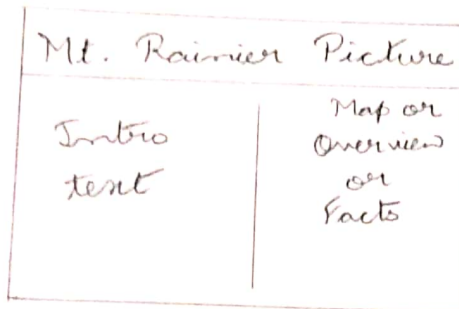 Mt. Rainier Picture
Intro
text
Map or
Overview
or
Facts